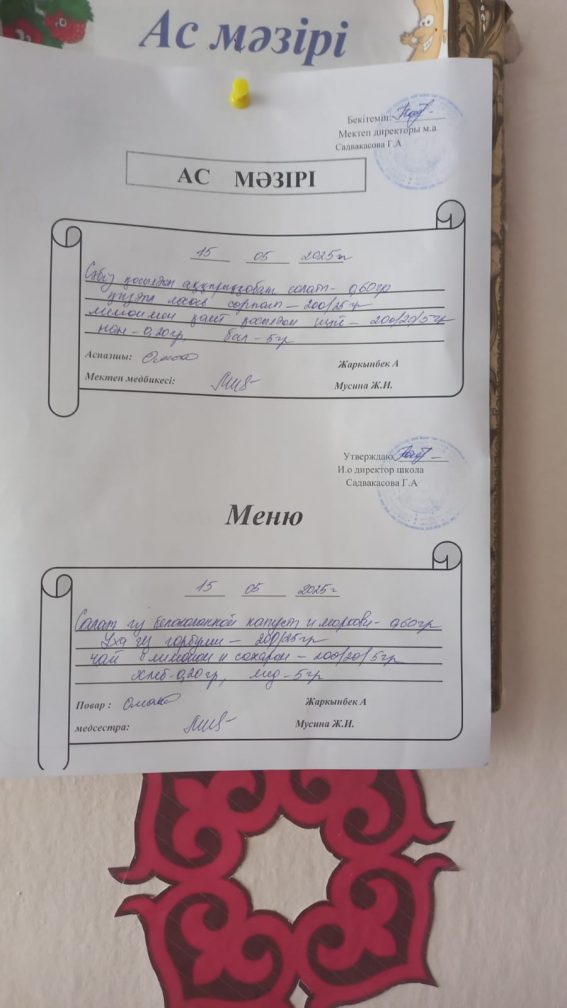 Ас мәзірі
Бекітемін:
Мектеп директоры м.а
Садвакасова Г.А
АС МӘЗІРІ
15 05 2025ж
Сәбіз қосылған ақ салат - 0,60гр
лосось сорпасы - 200/25гр
лимон мен қант қосылған шай - 200/20/5гр
нан - 0,20гр, бал - 5гр
Аспазшы:
Жаркынбек А
Мектеп медбикесі:
Мусина Ж.И.
Утверждаю
И.о директор школа
Садвакасова Г.А
Меню
15 05 2025г
Салат из белокочанной капуст и моркови - 0,60гр
Уха из горбуши - 200/25гр
чай с лимоном и сахаром - 200/20/5гр
хлеб - 0,20гр, мед - 5гр
Повар :
Жаркынбек А
медсестра:
Мусина Ж.И.